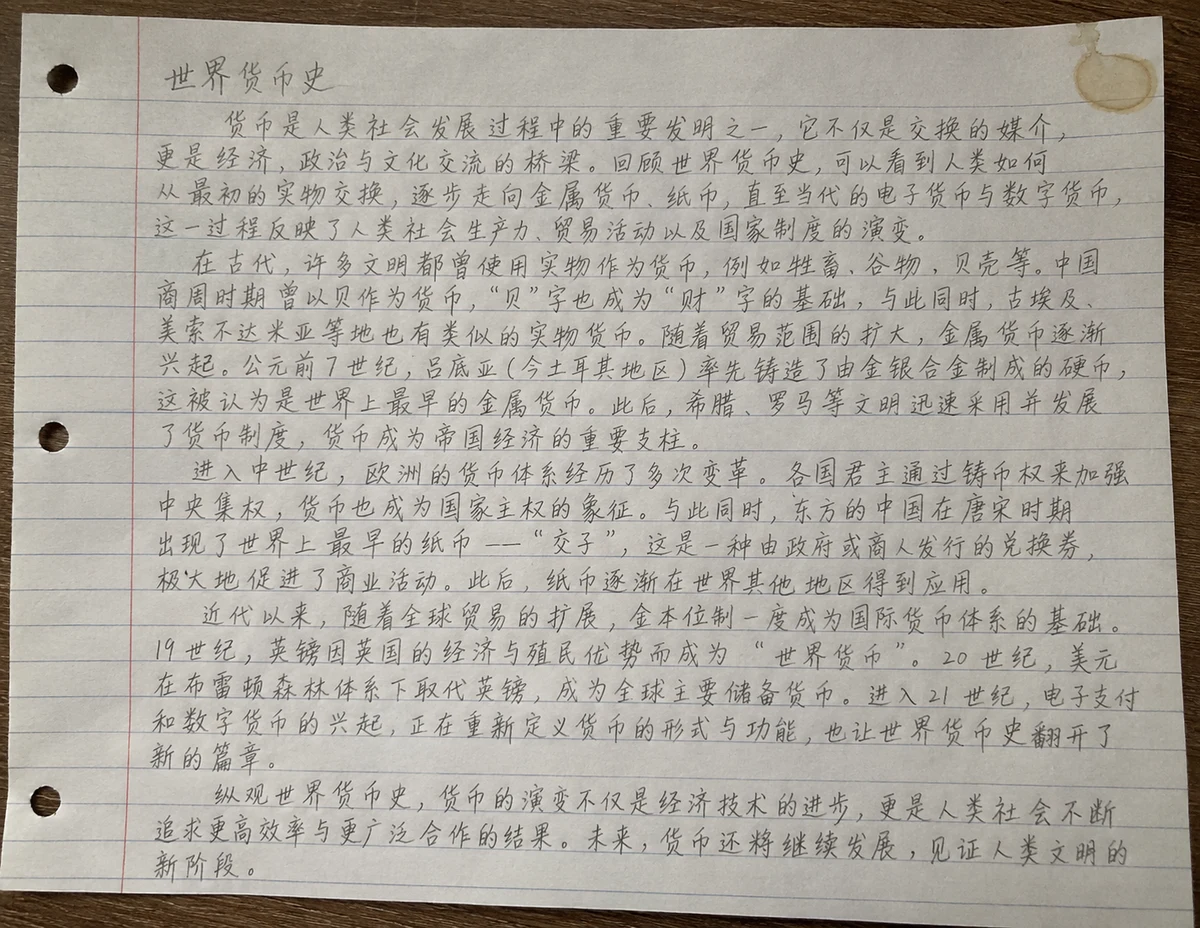 世界货币史
货币是人类社会发展过程中的重要发明之一，它不仅是交换的媒介，
更是经济，政治与文化交流的桥梁。回顾世界货币史，可以看到人类如何
从最初的实物交换，逐步走向金属货币、纸币，直至当代的电子货币与数字货币，
这一过程反映了人类社会生产力、贸易活动以及国家制度的演变。
在古代，许多文明都曾使用实物作为货币，例如牲畜、谷物、贝壳等。中国
商周时期曾以贝作为货币，“贝”字也成为“财”字的基础，与此同时，古埃及、
美索不达米亚等地也有类似的实物货币。随着贸易范围的扩大，金属货币逐渐
兴起。公元前7世纪，吕底亚（今土耳其地区）率先铸造了由金银合金制成的硬币，
这被认为是世界上最早的金属货币。此后，希腊、罗马等文明迅速采用并发展
了货币制度，货币成为帝国经济的重要支柱。
进入中世纪，欧洲的货币体系经历了多次变革。各国君主通过铸币权来加强
中央集权，货币也成为国家主权的象征。与此同时，东方的中国在唐宋时期
出现了世界上最早的纸币——“交子”，这是一种由政府或商人发行的兑换券，
极大地促进了商业活动。此后，纸币逐渐在世界其他地区得到应用。
近代以来，随着全球贸易的扩展，金本位制一度成为国际货币体系的基础。
19世纪，英镑因英国的经济与殖民优势而成为“世界货币”。20世纪，美元
在布雷顿森林体系下取代英镑，成为全球主要储备货币。进入21世纪，电子支付
和数字货币的兴起，正在重新定义货币的形式与功能，也让世界货币史翻开了
新的篇章。
纵观世界货币史，货币的演变不仅是经济技术的进步，更是人类社会不断
追求更高效率与更广泛合作的结果。未来，货币还将继续发展，见证人类文明的
新阶段。